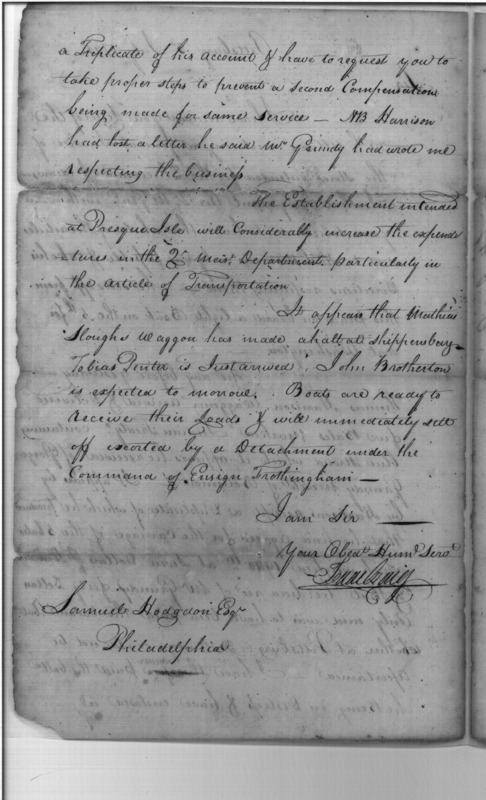 a Triplicate of his account & have to request you to
take proper steps to prevent a second Compensation
being made for same service — NB Harrison
had lost a letter he said Mr Grundy had wrote me
respecting the business
The Establishment intended
at Presque Isle will Considerably increase the expendi
-tures in the Qr Masr Department particularly in
the article of Transportation
It appears that Mathias
Sloughs waggon has made a halt at Shippensburg
Tobias is Just arrived, John Brotherton
is expected to morrow. Boats are ready to
receive their Loads & will immediately sett
off escorted by a Detachment under the
Command of Ensign Frothingham —
I am Sir —
Your Obedt Humb Servt
Isaac Craig
Samuel Hodgdon Esqr
Philadelphia